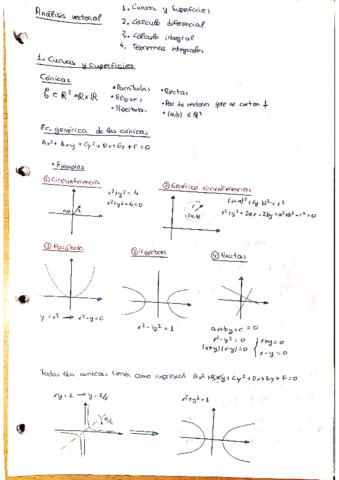 Análisis vectorial
1. Curvas y Superficies
2. Cálculo diferencial
3. Cálculo integral
4. Teoremas integrales
1. Curvas y superficies
Cónicas
C ⊂ R² = R×R
• Parábolas
• Elipses
• Hipérbolas
• Rectas
• Par de rectas que se cortan
• (a,b) ∈ R²
Ec. genérica de las cónicas
Ax² + Bxy + Cy² + Dx + Ey + F = 0
• Ejemplos
① Circunferencia
x² + y² = 4
x² + y² - 4 = 0
② Genérico circunferencias
(a,b)
(x-a)² + (y-b)² = r²
x² + y² - 2ax - 2by + a² + b² - r² = 0
Parábola
y = x² → x² - y = 0
③ Hipérbola
x² - y² = 1
④ Rectas
ax + by + c = 0
x² - y² = 0
(x+y)(x-y) = 0
x + y = 0
x - y = 0
Todas las cónicas tienen como expresión Ax² + Bxy + Cy² + Dx + Ey + F = 0
xy = 1 → y = 1/x
x² + y² = 1